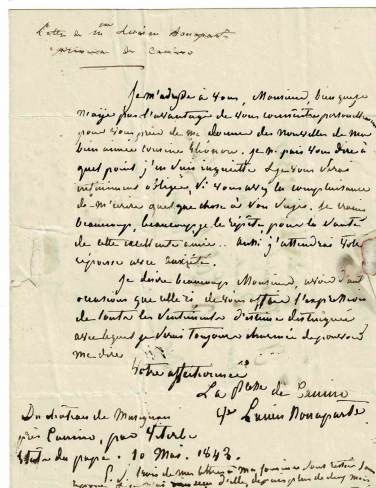 Lettre de Mme Lucien Bonaparte
princesse de Canino
Je m'adresse à vous, Monsieur, bien que je
n'aye pas l'avantage de vous connaître personnellement
pour vous prier de me donner des nouvelles de ma
bien aimée cousine Eléonore. je ne puis vous dire à
quel point j'en suis inquiette et je vous serai
infiniment obligée, si vous avez la complaisance
de m'écrire quelque chose à son sujet. Je crains
beaucoup, beaucoup, je le répète, pour la santé
de cette excellente amie.. aussi j'attendrai votre
réponse avec anxiété.
Je désire beaucoup, Monsieur, avoir d'autres
occasions que celle-ci de vous offrir l'expression
de toute les sentiments d'estime distinguée
avec lequel je serai toujours charmée de pouvoir
me dire
Votre affectionnée
La Psse de Canino
Lucien Bonaparte
Du château de Musignano
près Canino, par Viterbe
Etats du pape. 10 Mai. 1843.